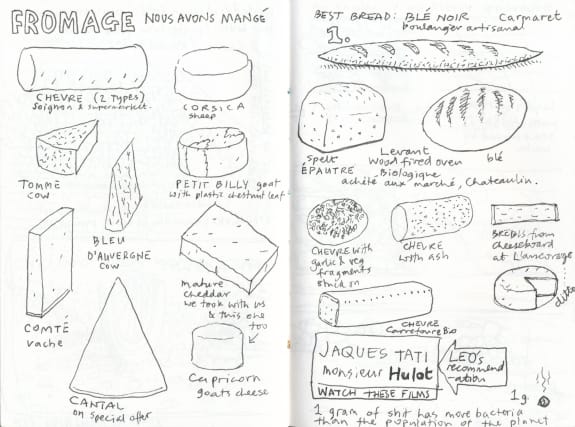 FROMAGE NOUS AVONS MANGÉ
CHEVRE (2 Types)
Soignon & supermarket.
CORSICA
sheep
TOMME
COW
PETIT BILLY goat
with plastic chestnut leaf
BLEU
D'AUVERGNE
COW
mature
cheddar
we took with us
& this one
too
COMTÉ
vache
CANTAL
on special offer
Capricorn
goats cheese
BEST BREAD: BLÉ NOIR Carmaret
boulanger artisanal
1.
spelt
ÉPAUTRE
Levant
Wood fired oven
Biologique
blé
achété aux marché, Chateaulin.
CHEVRE with
garlic & veg
fragments
stuck on
CHEVRE
with ash
from
cheeseboard
at L'ancorage
ditto
CHEVRE
Carrefoure Bio
JAQUES TATI
monsieur Hulot
WATCH THESE FILMS
LEO's
recommend
-ation
1g.
1 gram of shit has more bacteria
than the population of the planet